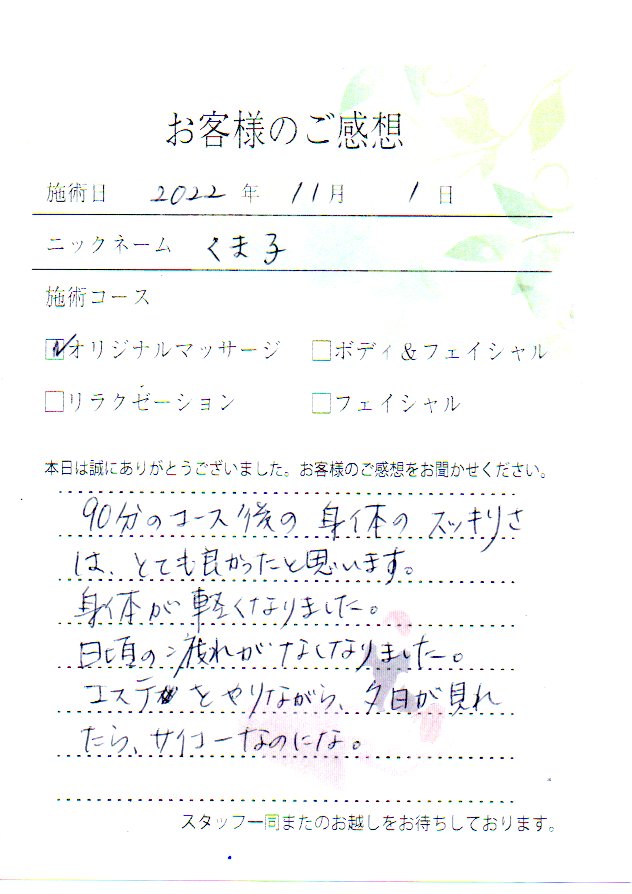 お客様のご感想
施術日 2022 年 11月 1日
ニックネーム くま子
施術コース
オリジナルマッサージ □ボディ&フェイシャル
□リラクゼーション □フェイシャル
本日は誠にありがとうございました。お客様のご感想をお聞かせください。
90分のコース後の身体のスッキリさ
は、とても良かったと思います。
身体が軽くなりました。
日頃の疲れがなくなりました。
エステをやりながら、夕日が見れ
たら、サイコーなのにな。
スタッフ一同またのお越しをお待ちしております。